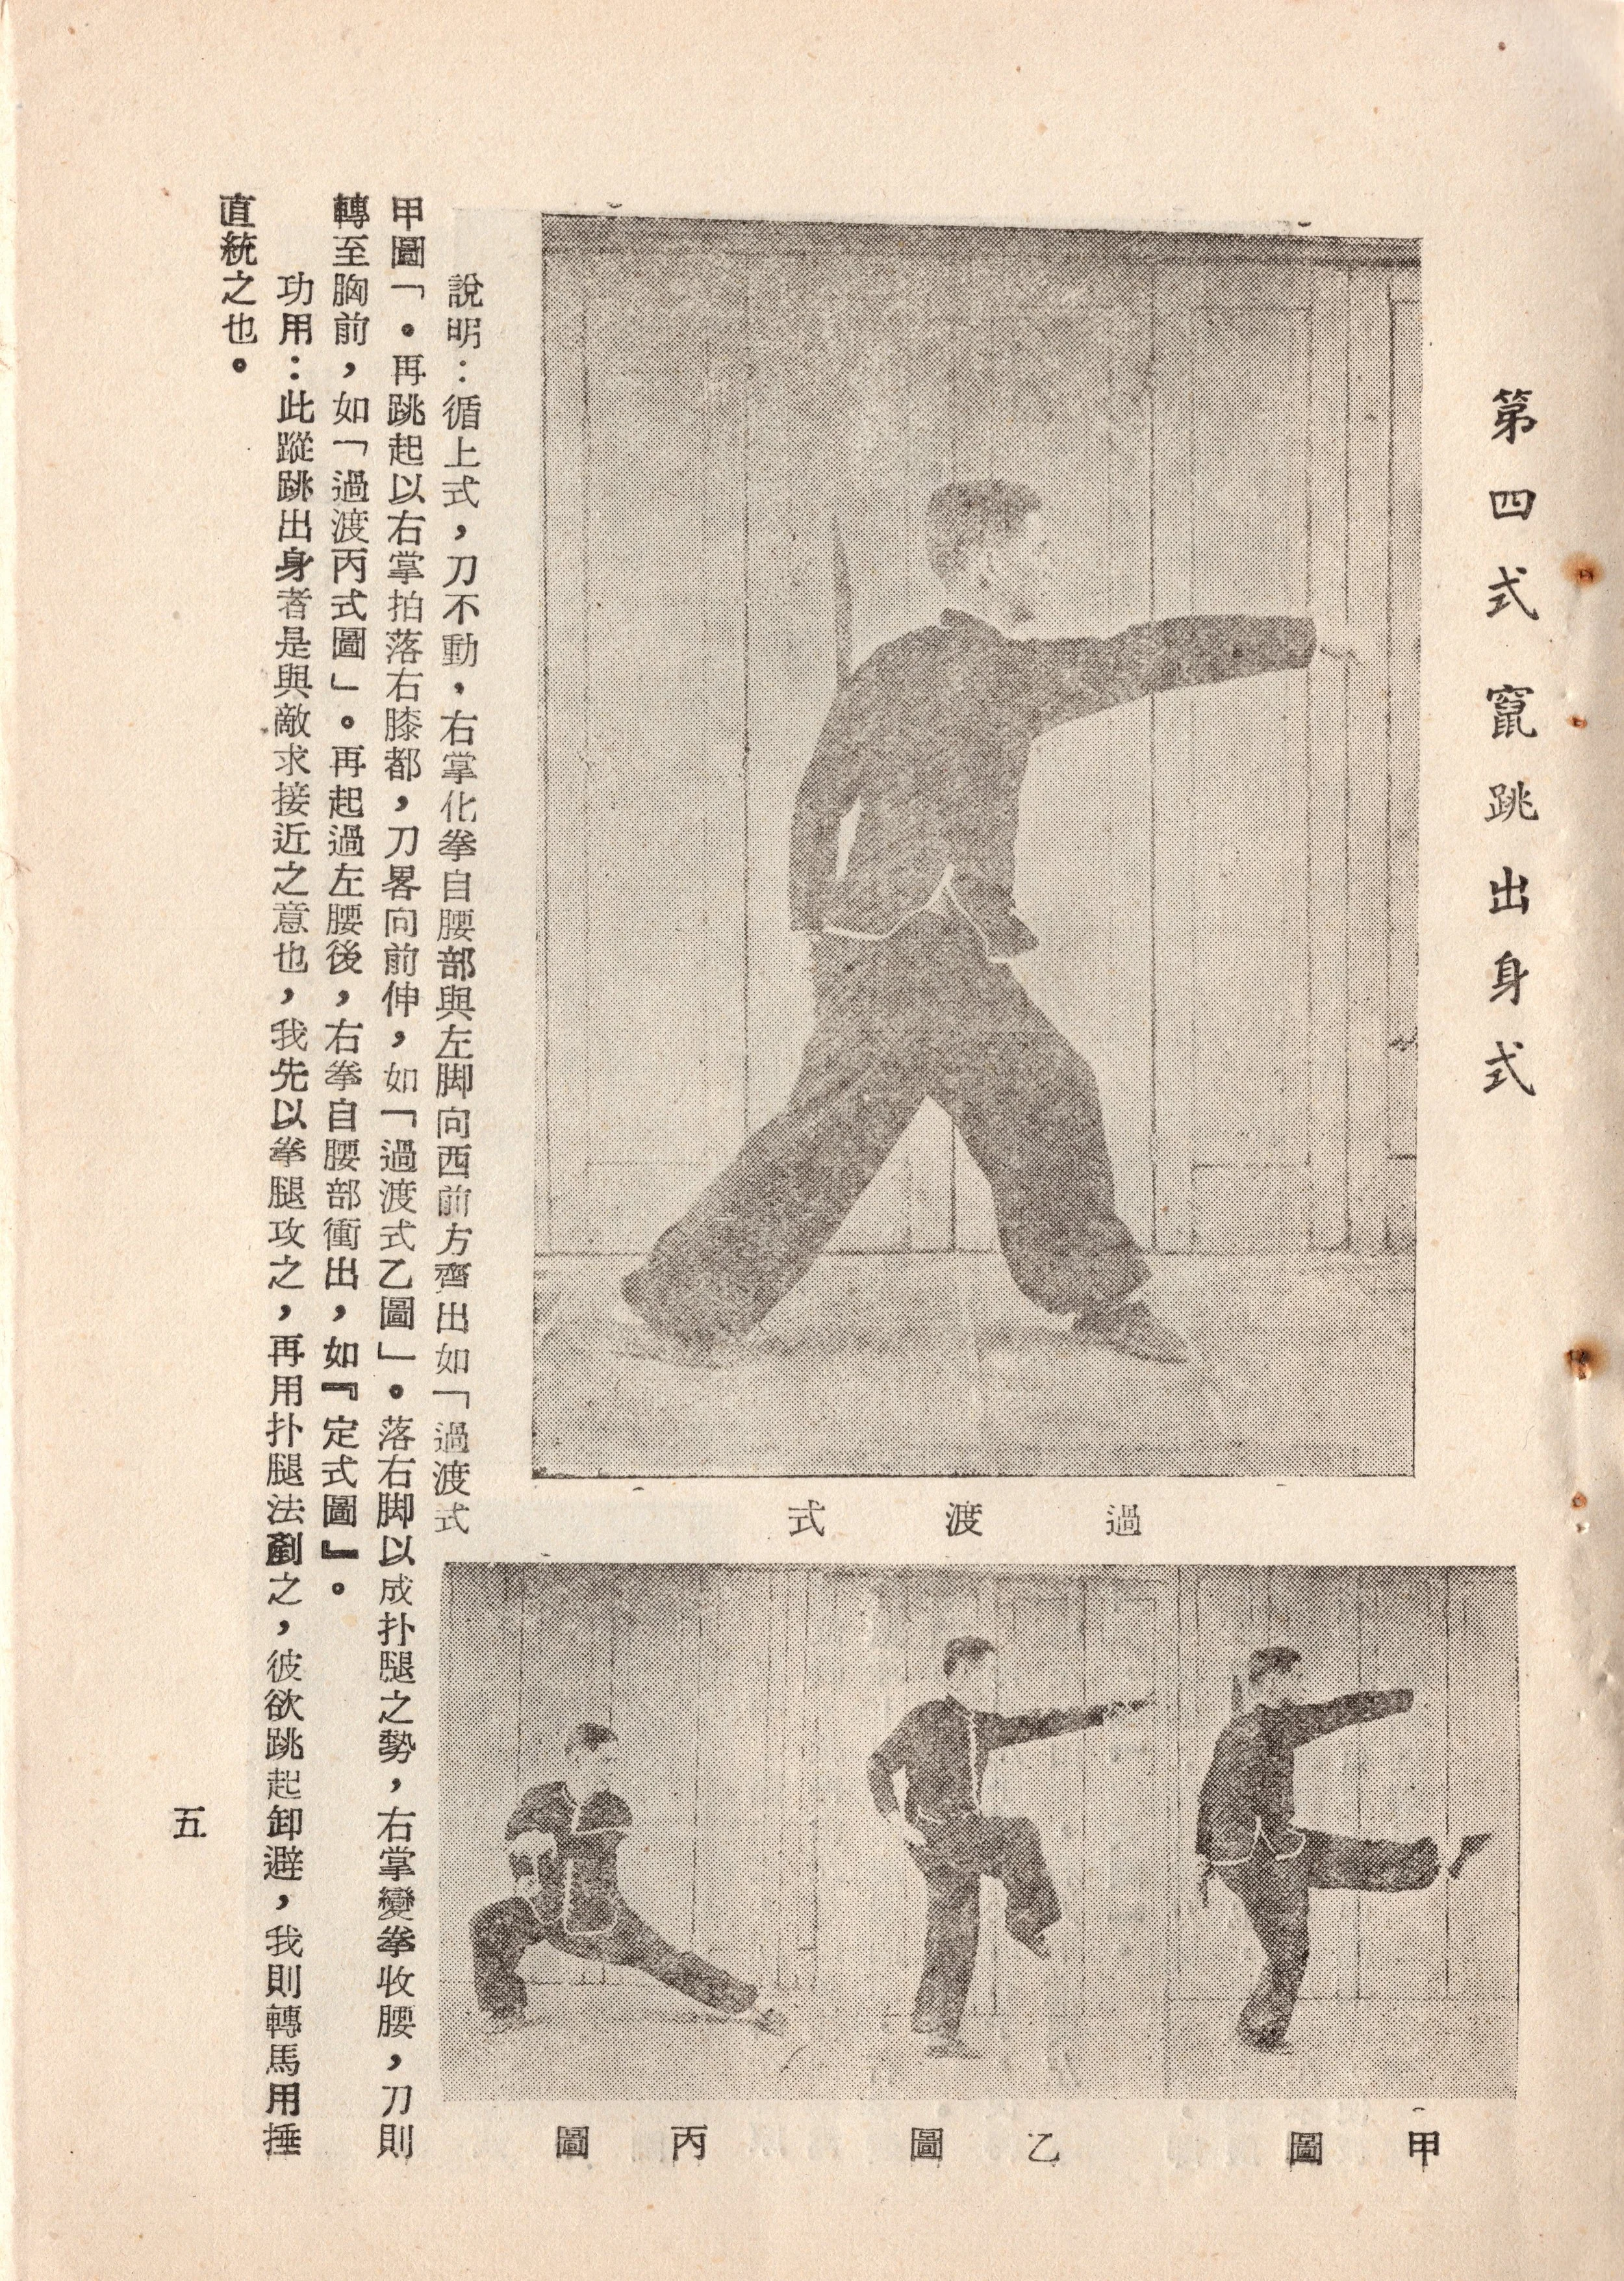 第四式竄跳出身式
過渡式
甲圖
乙圖
丙圖
說明：循上式，刀不動，右掌化拳自腰部與左脚向西前方齊出如「過渡式
甲圖「。再跳起以右掌拍落右膝都，刀畧向前伸，如「過渡式乙圖」。落右脚以成扑腿之勢，右掌變拳收腰，刀則
轉至胸前，如「過渡丙式圖」。再起過左腰後，右拳自腰部衝出，如『定式圖』。
功用：此蹤跳出身者是與敵求接近之意也，我先以拳腿攻之，再用扑腿法剷之，彼欲跳起卸避，我則轉馬用捶
直統之也。
五